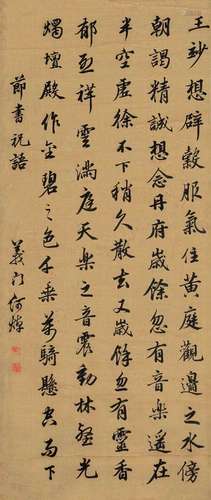 王妙想辟穀服氣住黃庭觀邊之水傍
朝謁精誠想念丹府歲餘忽有音樂遙在
半空虛徐不下稍久散去又歲餘忽有靈香
郁烈祥雲滿庭天樂之音震動林壑光
燭壇殿作金碧之色千乘萬騎懸空而下
節書祝語
義門何焯